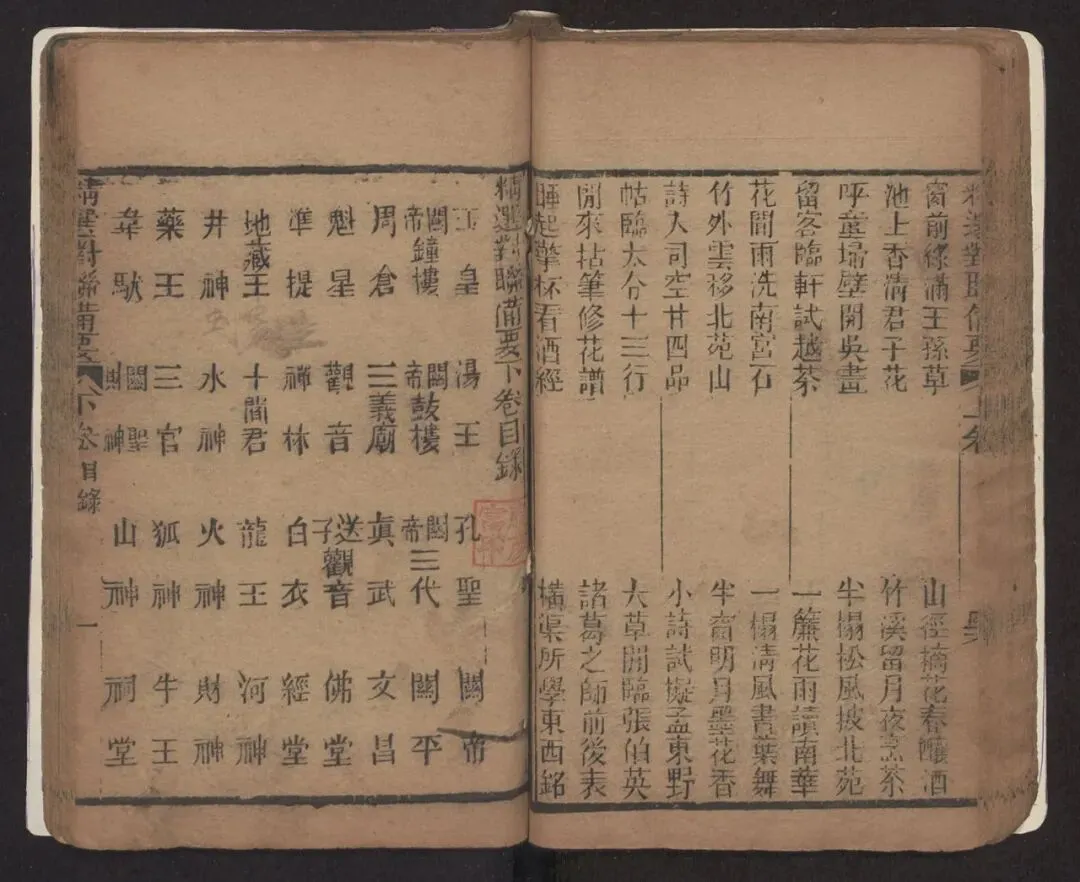 精選對聯備要 上卷
窗前綠滿王孫草 山徑擕花春釀酒
池上香清君子花 竹溪留月夜烹茶
呼童埽壁開吳畫 半榻松風披北苑
留客臨軒試越茶 一簾花雨讀南華
花間雨洗南宮石 一榻清風書葉舞
竹外雲移北苑山 半窗明月墨花香
詩人司空廿四品 小詩試擬孟東野
帖臨太令十三行 大草閒臨張伯英
閒來拈筆修花譜 諸葛之師前後表
睡起擎杯看酒經 橫渠所學東西銘
精選對聯備要下卷目錄
玉皇 湯王 孔聖 關帝
關帝鐘樓 關帝鼓樓 關帝三代 關平
周倉 三義廟 眞武 文昌
魁星 觀音 送子觀音 佛堂
準提 禅林 白衣 經堂
地藏王 十閻君 龍王 河神
井神 水神 火神 財神
藥王 三官 狐神 牛王
韋馱 關聖財神 山神 祠堂
精選對聯備要 下卷目錄 一